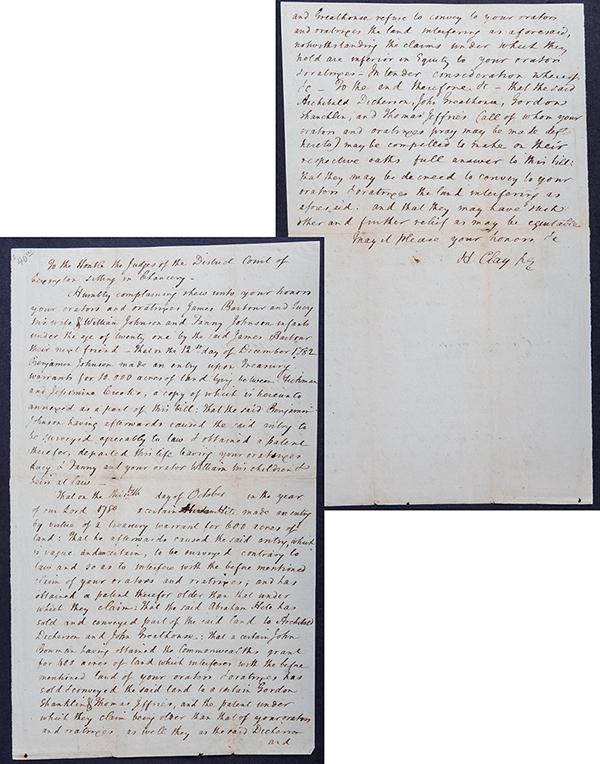 To the Honble the Judges of the District Court of
Lexington sitting in Chancery -
Humbly complaining shew unto your honors
your orators and oratrixes James Barbour and Lucy
his wife & William Johnson and Fanny Johnson infants
under the age of twenty one by the said James Barbour
their next friend - That on the 12th day of December 1782
Benjamin Johnson made an entry upon Treasury
warrants for 10.000 acres of land lying between Hickman
and Jessamine Creeks, a copy of which is hereunto
annexed as a part of this bill: that the said Benjamin
Johnson having afterwards caused the said entry to
be surveyed agreeably to law & obtained a patent
therefor, departed this life leaving your oratrixes
Lucy & Fanny and your orator William his children &
heirs at law -
That on the day of October in the year
of our Lord 1780 a certain Hite made an entry
by virtue of a treasury warrant for 600 acres of
land: That he afterwards caused the said entry, which
is vague and uncertain, to be surveyed contrary to
law and so as to interfere with the before mentioned
claim of your orators and oratrixes; and has
obtained a patent therefor older than that under
which they claim: That the said Abraham Hite has
sold and conveyed part of the said land to Archibald
Dickerson and John Greathouse: that a certain John
Bowman having obtained the Commonwealths grant
for 400 acres of land which interferes with the before
mentioned land of your orators & oratrixes has
sold & conveyed the said land to a certain Gordon
Shanklin & Thomas Jeffries, and the patent under
which they claim being older than that of your orators
and oratrixes, as well they as the said Dickerson
and
and Greathouse refuse to convey to your orators
and oratrixes the land interfering as aforesaid,
notwithstanding the claims under which they
hold are inferior in Equity to your orators
& oratrixes - In tender consideration whereof
&c - To the end therefore &c - that the said
Archibald Dickerson, John Greathouse, Gordon
Shanchlin, and Thomas Jeffries (all of whom your
orators and oratrixes pray may be made defts
hereto) may be compelled to make on their
respective oaths full answer to this bill:
that they may be decreed to convey to your
orators & oratrixes the land interfering as
aforesaid: and that they may have such
other and further relief as may be equitable
May it please your honors &c
H Clay